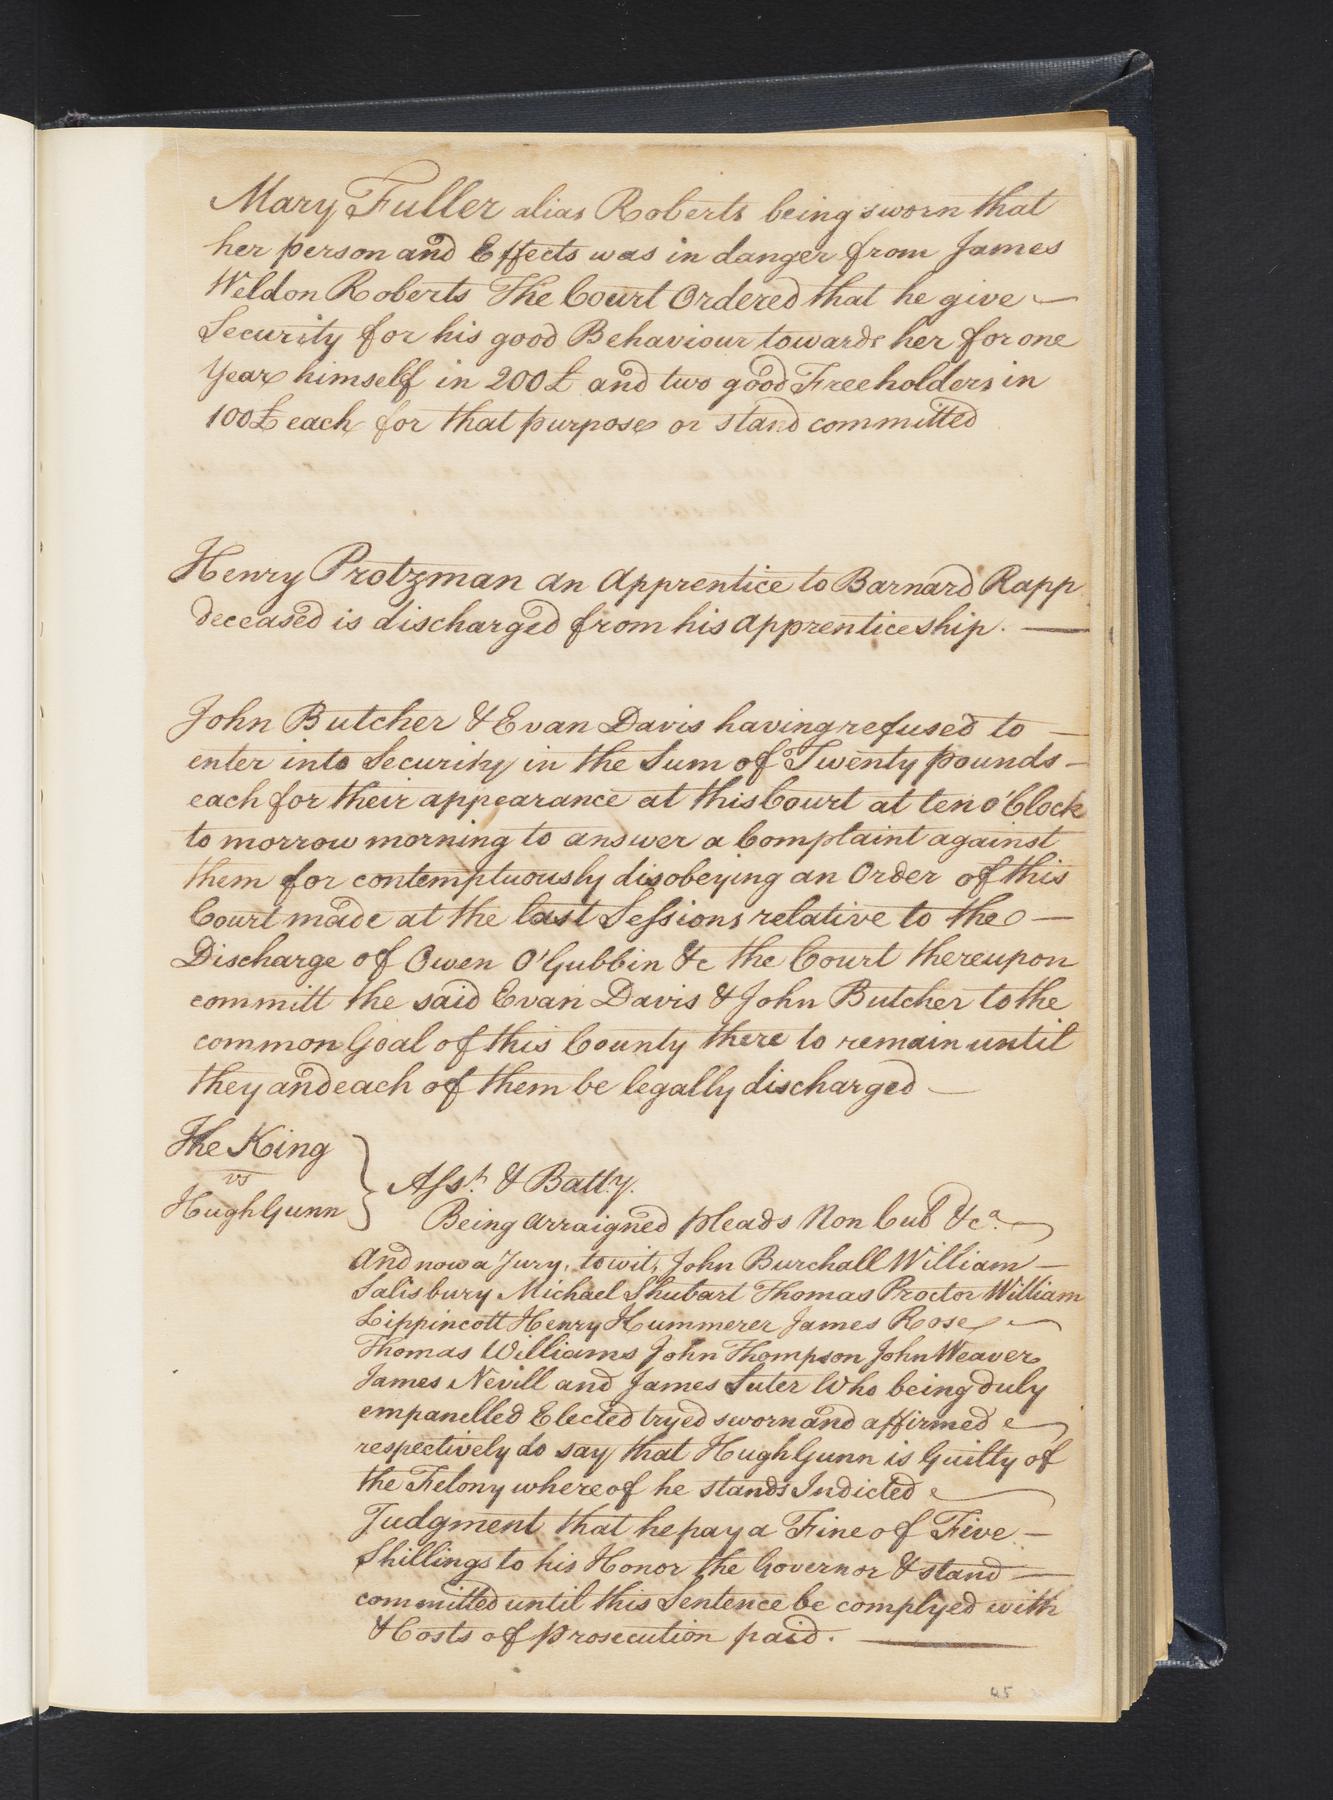 Mary Fuller alias Roberts being sworn that
her person and Effects was in danger from James
Weldon Roberts The Court Ordered that he give —
Security for his good Behaviour towards her for one
Year himself in 200£ and two good Freeholders in
100£ each for that purpose or stand committed
Henry Protzman an Apprentice to Barnard Rapp
deceased is discharged from his Apprenticeship. —
John Butcher & Evan Davis having refused to —
enter into Security in the Sum of Twenty pounds —
each for their appearance at this Court at ten o'Clock
to morrow morning to answer a Complaint against
them for contemptuously disobeying an Order of this
Court made at the last Sessions relative to the —
Discharge of Owen O'Gubbin &c the Court thereupon
committ the said Evan Davis & John Butcher to the
common Goal of this County there to remain until
they and each of them be legally discharged —
The King
vs
Hugh Gunn
Asst. & Batty.
Being arraigned pleads Non Cul &ca.
And now a Jury, to wit, John Burchall William —
Salisbury Michael Shubart Thomas Proctor William
Lippincott Henry Hummerer James Rose —
Thomas Williams John Thompson John Weaver
James Nevill and James Suter Who being duly
empanelled Elected tryed sworn and affirmed
respectively do say that Hugh Gunn is Guilty of
the Felony whereof he stands Indicted
Judgment that he pay a Fine of Five —
Shillings to his Honor the Governor & stand —
committed until this Sentence be complyed with
& Costs of prosecution paid. —
45